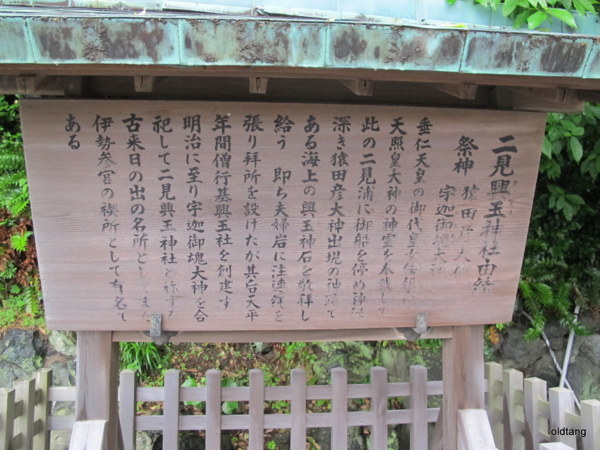 二見興玉神社由緒
祭神 猿田彦大神
宇迦御魂大神
垂仁天皇の御代皇女倭姫命
天照皇大神の神霊を奉戴して
此の二見浦に御船を停め神縁
深き猿田彦大神出現の神跡で
ある海上の興玉神石を敬拝し
給う 即ち夫婦岩に注連縄を
張り拝所を設けたが其后天平
年間僧行基興玉社を創建す
明治に至り宇迦御魂大神を合
祀して二見興玉神社と称す
古来日の出の名所としてまた
伊勢参宮の禊所として有名で
ある
oldtang